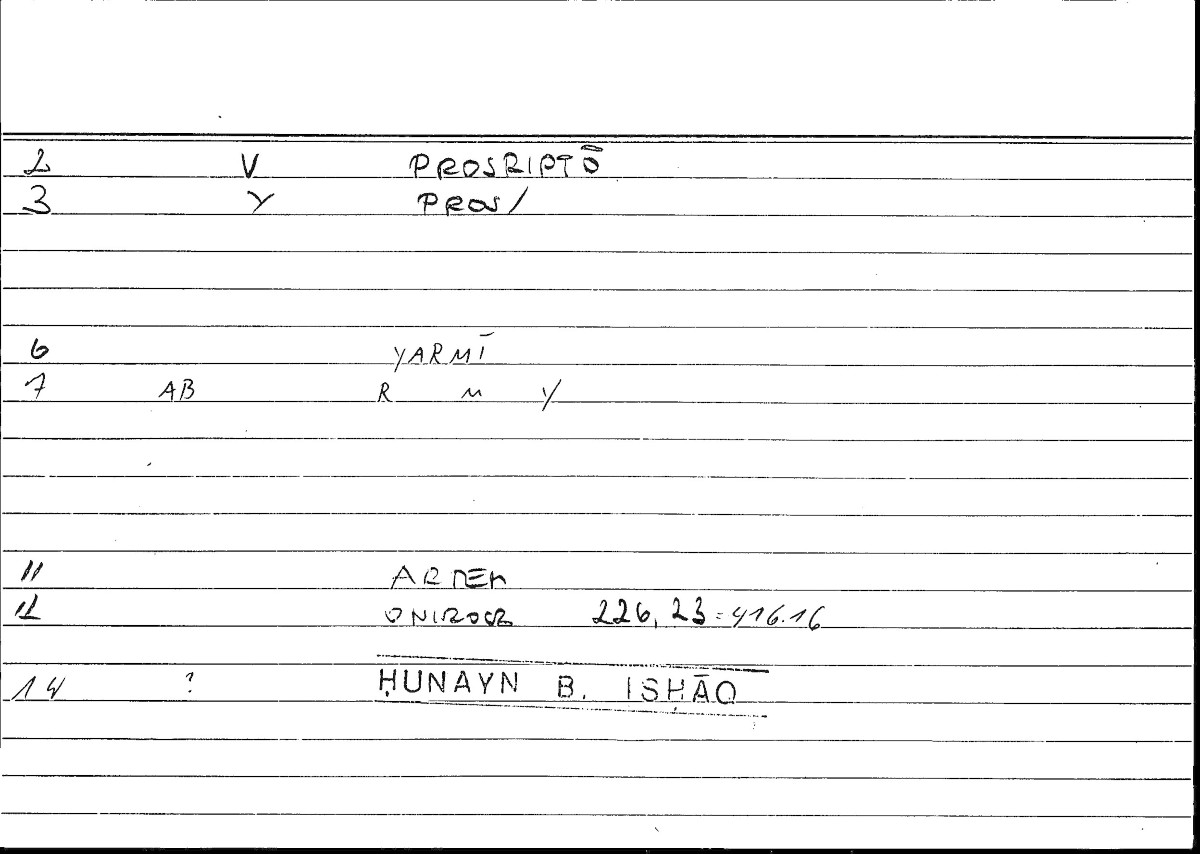 2 V PROSRIPTŌ
3 Y PROS/
6 YARMĪ
7 AB R M Y
11 ARTEM
12 ONIROCR 226, 23 = 416.16
14 ? ḤUNAYN B. ISḤĀQ